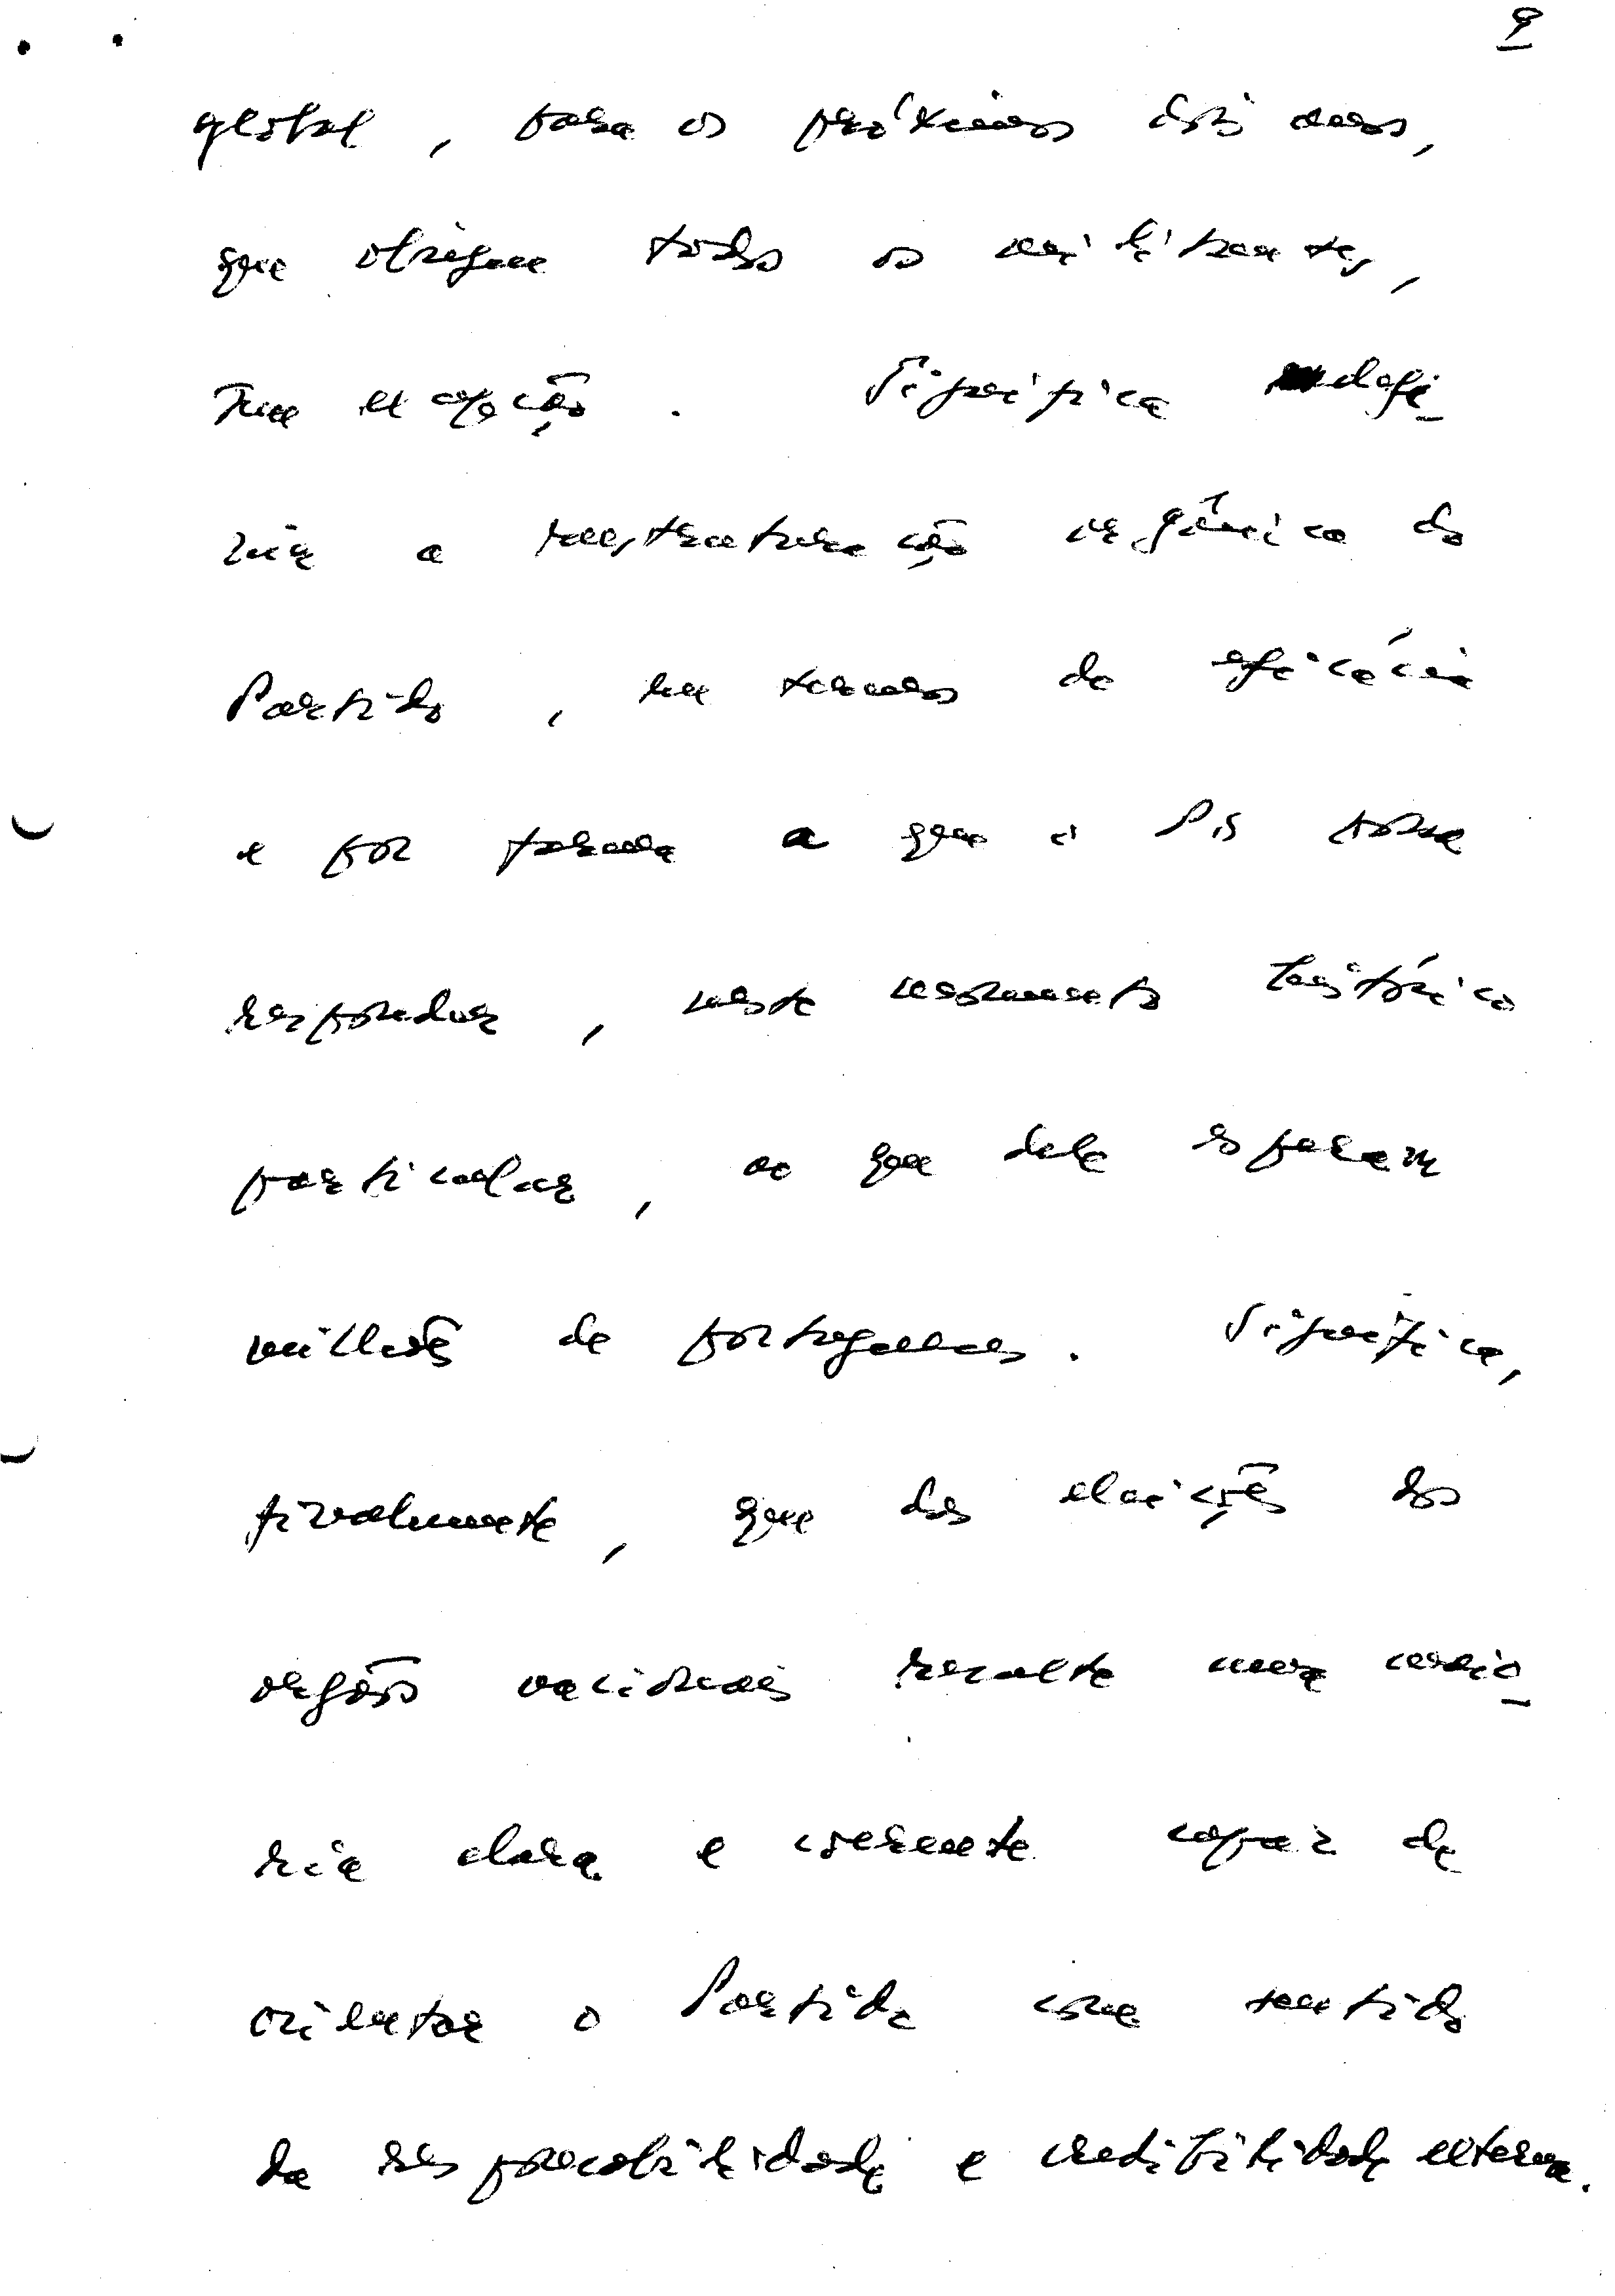 9
global, para os próximos dois anos,
que obrigue todos os militantes,
sem excepção. Significa defi-
nir a reestruturação orgânica do
Partido, em termos de eficácia
e por forma a que o PS possa
responder, neste momento histórico
particular, ao que dele esperam
milhões de portugueses. Significa,
finalmente, que das eleições dos
orgãos nacionais resulte uma maio-
ria clara e coerente capaz de
orientar o Partido com sentido
da responsabilidade e credibilidade externa.